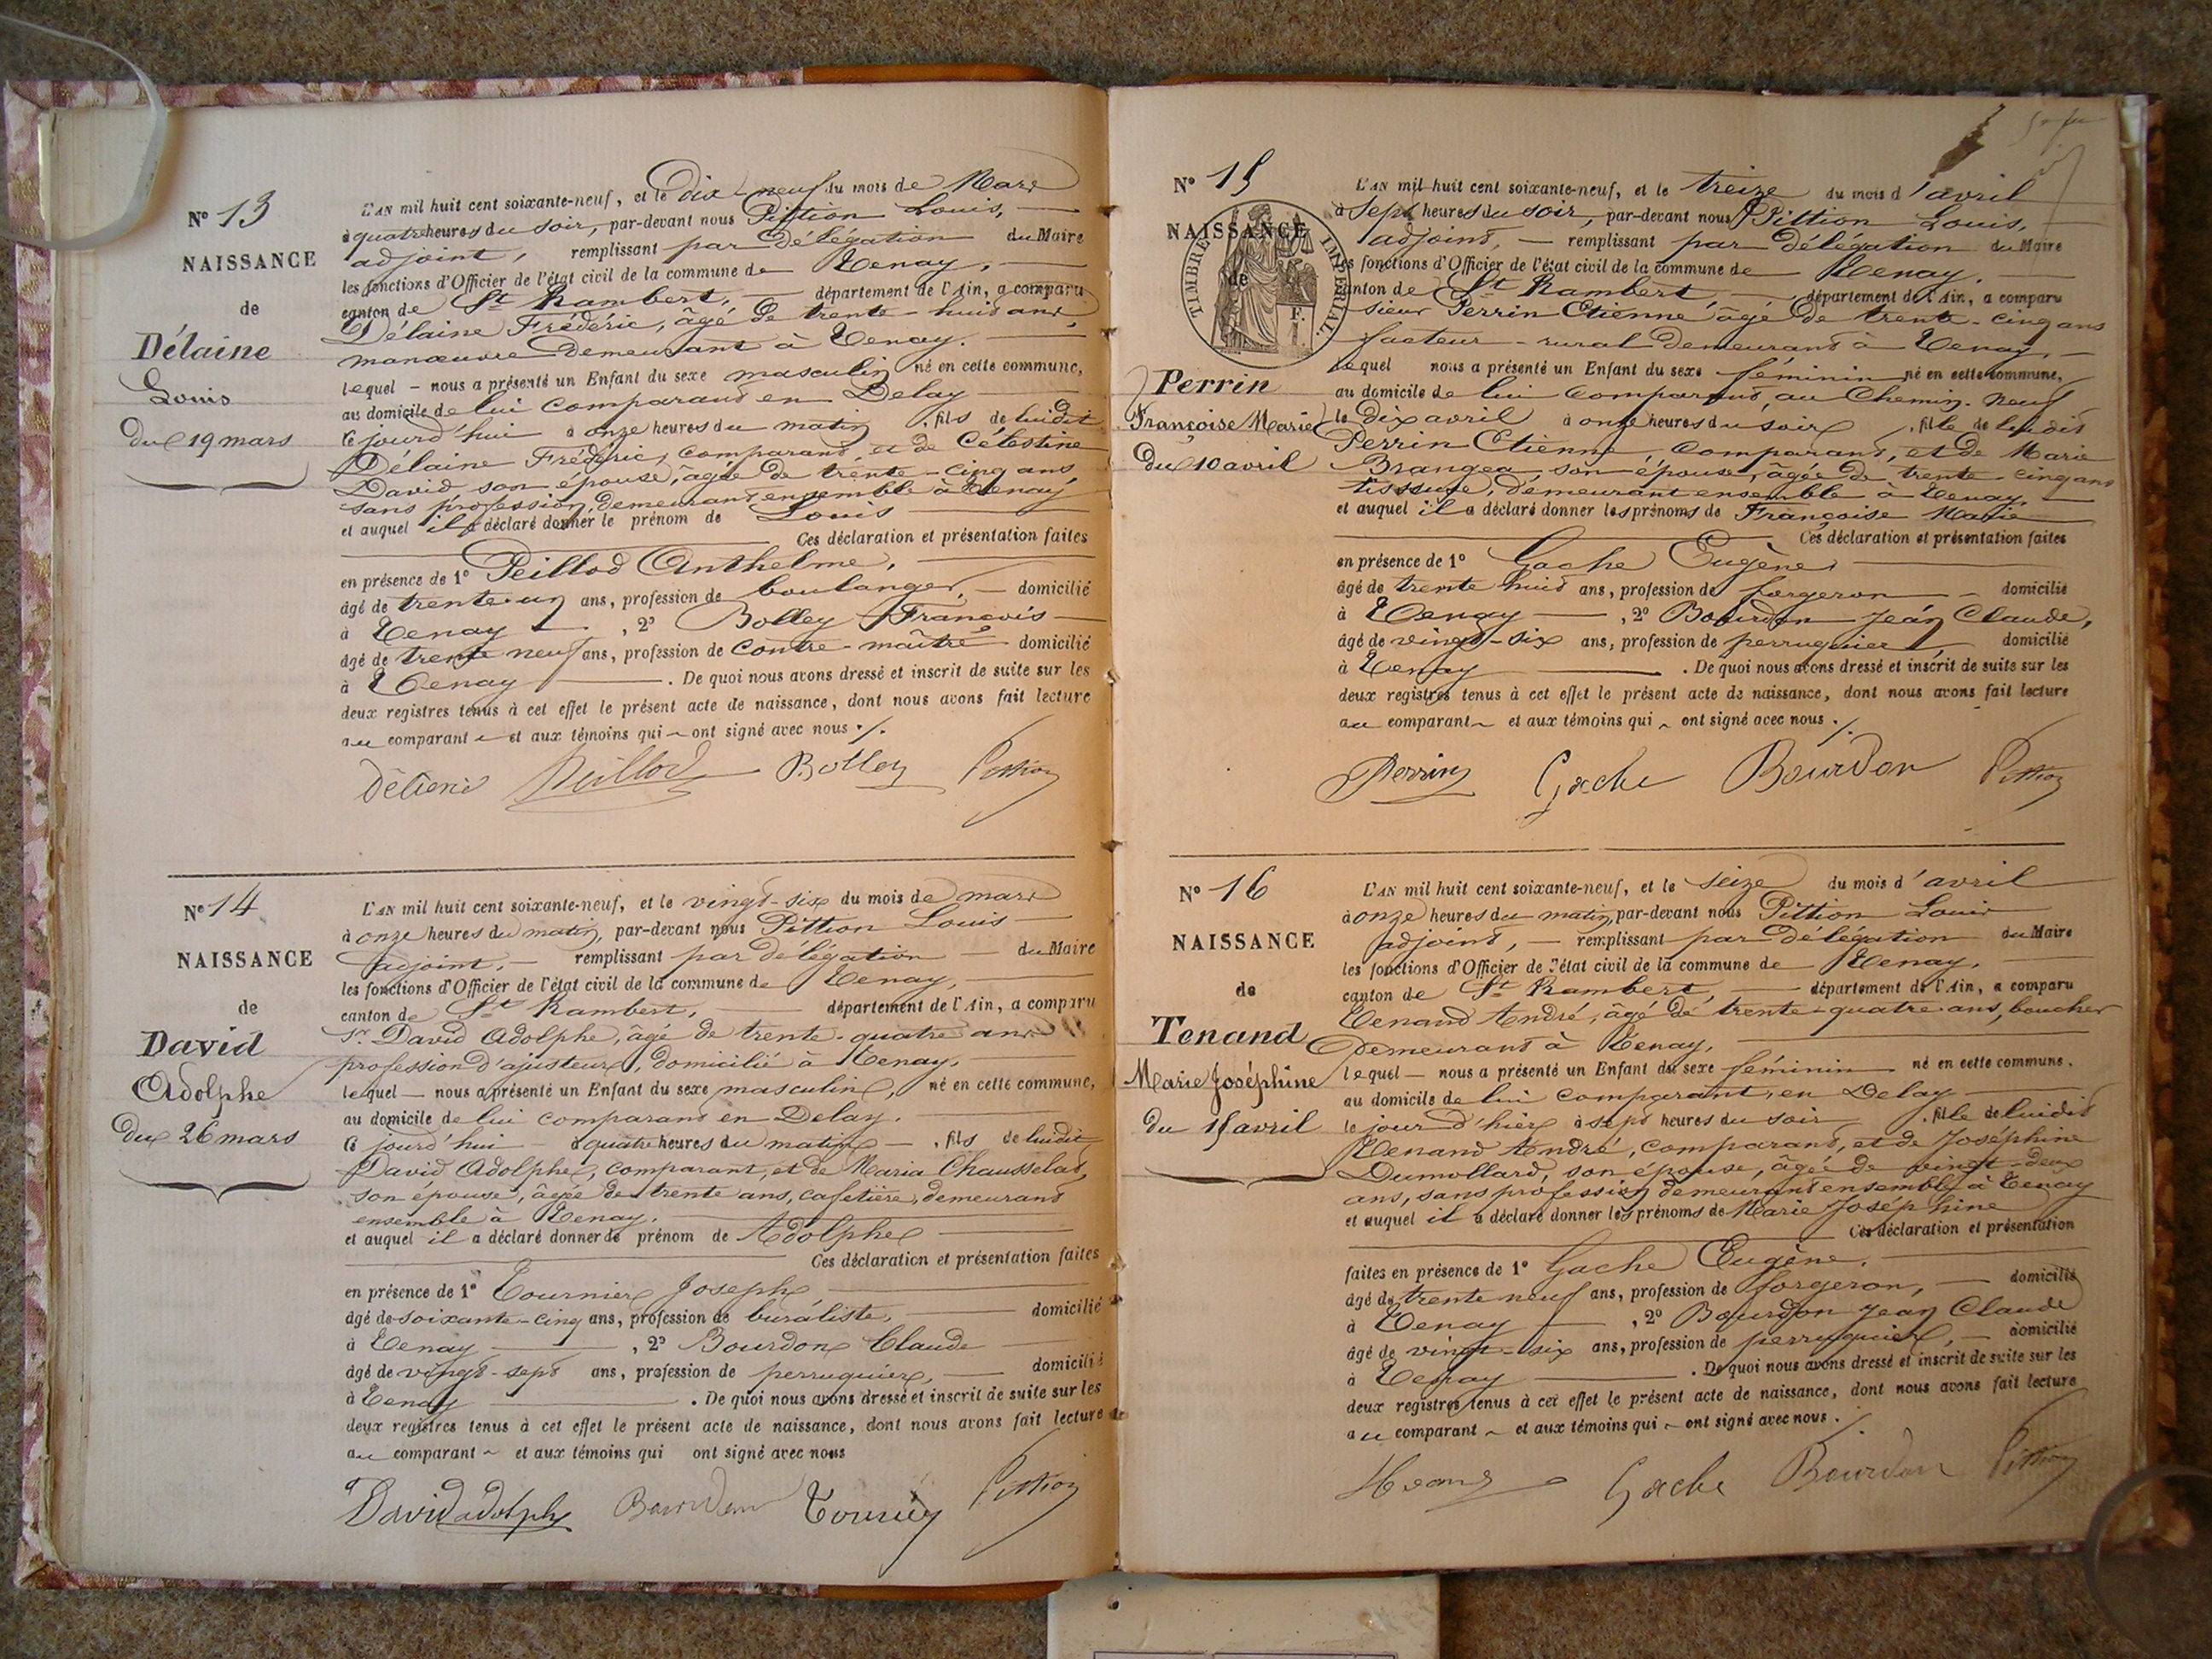 N° 13
NAISSANCE
de
Délaine
Louis
du 19 mars
L'AN mil huit cent soixante-neuf, et le Dix-neuf du mois de Mars
à quatre heures du soir, par-devant nous Pittion Louis,
adjoint, remplissant par Délégation du Maire
les fonctions d'Officier de l'état civil de la commune de Tenay,
canton de St Rambert, département de l'Ain, a comparu
Délaine Frédéric, âgé de trente-huit ans,
manœuvre demeurant à Tenay.
lequel nous a présenté un Enfant du sexe masculin né en cette commune,
au domicile de lui comparant en Delay
ce jourd'hui à onze heures du matin, fils de luidit
Délaine Frédéric, comparant, et de Célestine
David son épouse, âgée de trente-cinq ans
sans profession, demeurant ensemble à Tenay
et auquel il a déclaré donner le prénom de Louis
Ces déclaration et présentation faites
en présence de 1° Peillod Anthelme,
âgé de trente-un ans, profession de boulanger, domicilié
à Tenay, 2° Bolley François
âgé de trente neuf ans, profession de contre-maître domicilié
à Tenay. De quoi nous avons dressé et inscrit de suite sur les
deux registres tenus à cet effet le présent acte de naissance, dont nous avons fait lecture
au comparant et aux témoins qui ont signé avec nous ./.
Peillod Bolley Pittion
N° 14
NAISSANCE
de
David
Adolphe
du 26 mars
L'AN mil huit cent soixante-neuf, et le vingt-six du mois de mars
à onze heures du matin, par-devant nous Pittion Louis
adjoint, remplissant par délégation du Maire
les fonctions d'Officier de l'état civil de la commune de Tenay,
canton de St Rambert, département de l'Ain, a comparu
Sr. David Adolphe, âgé de trente-quatre ans
profession d'ajusteur, domicilié à Tenay,
lequel nous a présenté un Enfant du sexe masculin, né en cette commune,
au domicile de lui comparant en Delay.
ce jourd'hui à quatre heures du matin, fils de luidit
David Adolphe, comparant, et de Maria Chausselat,
son épouse, âgée de trente ans, cafetière, demeurant
ensemble à Tenay.
et auquel il a déclaré donner le prénom de Adolphe
Ces déclaration et présentation faites
en présence de 1° Tournier Joseph,
âgé de soixante-cinq ans, profession de buraliste, domicilié
à Tenay, 2° Bourdon Claude
âgé de vingt-sept ans, profession de perruquier, domicilié
à Tenay. De quoi nous avons dressé et inscrit de suite sur les
deux registres tenus à cet effet le présent acte de naissance, dont nous avons fait lecture
au comparant et aux témoins qui ont signé avec nous
David adolphe Bourdon Pittion
N° 15
NAISSANCE
de
TIMBRE IMPERIAL.
Perrin
Françoise Marie
du 10 avril
L'AN mil huit cent soixante-neuf, et le treize du mois d'avril
à Sept heures du soir, par-devant nous Pittion Louis,
adjoint, remplissant par Délégation du Maire
les fonctions d'Officier de l'état civil de la commune de Tenay.
canton de St Rambert, département de l'Ain, a comparu
sieur Perrin Etienne âgé de trente-cinq ans
facteur-rural demeurant à Tenay,
lequel nous a présenté un Enfant du sexe féminin né en cette commune,
au domicile de lui comparant, au Chemin-neuf
le dix avril à onze heures du soir, fille de luidit
Perrin Etienne, comparant, et de Marie
Brangea, son épouse, âgée de trente-cinq ans
tisseuse, demeurant ensemble à Tenay,
et auquel il a déclaré donner les prénoms de Françoise Marie
Ces déclaration et présentation faites
en présence de 1° Gache Eugène
âgé de trente huit ans, profession de forgeron domicilié
à Tenay, 2° Bourdon Jean Claude,
âgé de vingt-six ans, profession de perruquier, domicilié
à Tenay. De quoi nous avons dressé et inscrit de suite sur les
deux registres tenus à cet effet le présent acte de naissance, dont nous avons fait lecture
au comparant et aux témoins qui ont signé avec nous ./.
Perrin Gache Bourdon Pittion
N° 16
NAISSANCE
de
Tenand
Marie Joséphine
du 15 avril
L'AN mil huit cent soixante-neuf, et le seize du mois d'avril
à onze heures du matin, par-devant nous Pittion Louis
adjoint, remplissant par délégation du Maire
les fonctions d'Officier de l'état civil de la commune de Tenay.
canton de St Rambert, département de l'Ain, a comparu
Tenand André, âgé de trente-quatre ans, boucher
demeurant à Tenay,
lequel nous a présenté un Enfant du sexe féminin né en cette commune.
au domicile de lui comparant, en Delay
le jour d'hier à sept heures du soir, fille de luidit
Tenand André, comparant, et de Joséphine
Dumollard, son épouse, âgée de vingt-deux
ans, sans profession demeurant ensemble à Tenay
et auquel il a déclaré donner les prénoms de Marie Joséphine
Ces déclaration et présentation
faites en présence de 1° Gache Eugène.
âgé de trente neuf ans, profession de forgeron, domicilié
à Tenay, 2° Bourdon Jean Claude
âgé de vingt-six ans, profession de perruquier, domicilié
à Tenay. De quoi nous avons dressé et inscrit de suite sur les
deux registres tenus à cet effet le présent acte de naissance, dont nous avons fait lecture
au comparant et aux témoins qui ont signé avec nous ./.
Gache Bourdon Pittion